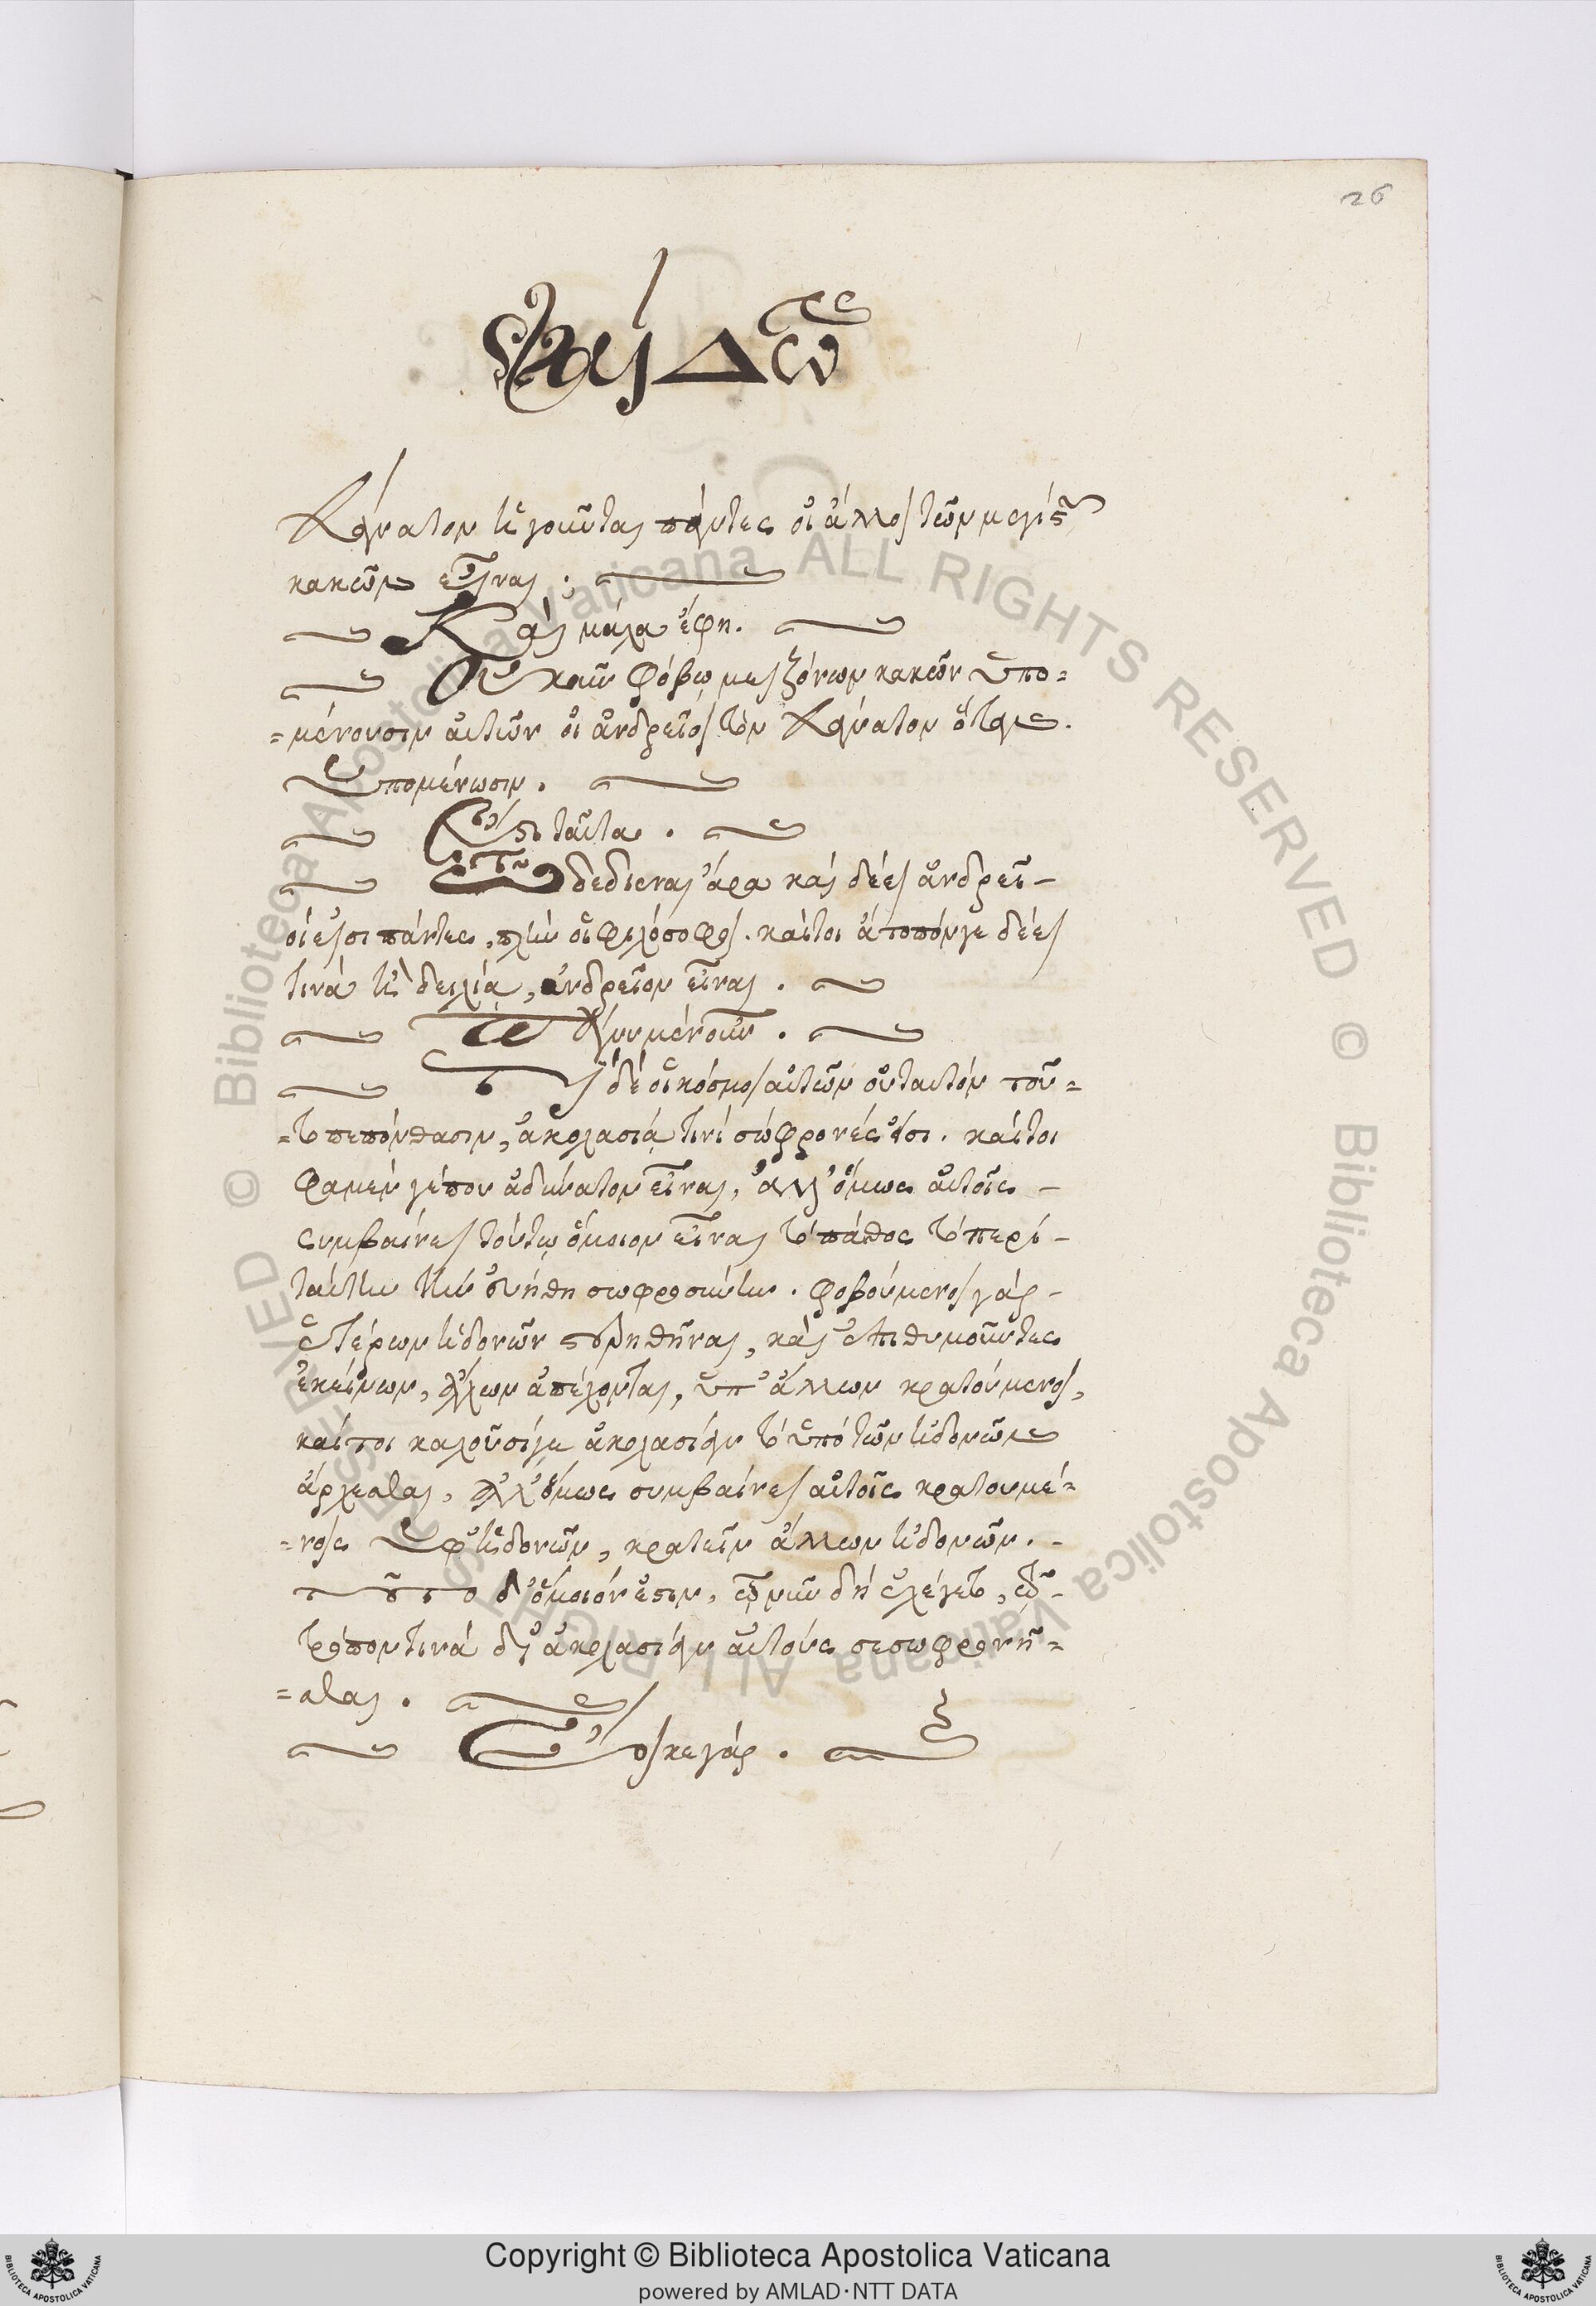 26
Φαίδων
θάνατον ἡγοῦνται πάντες οἱ ἄλλοι τῶν μεγίστων
κακῶν εἶναι;
Καὶ μάλα ἔφη.
Οὐκοῦν φόβῳ μειζόνων κακῶν ὑπο=
=μένουσιν αὐτῶν οἱ ἀνδρεῖοι τὸν θάνατον ὅταν
ὑπομένωσιν.
Ἔστι ταῦτα.
Τῷ δεδιέναι ἄρα καὶ δέει ἀνδρεῖ-
οί εἰσι πάντες, πλὴν οἱ φιλόσοφοι. καίτοι ἄτοπόν γε δέει
τινὰ ἢ δειλίᾳ, ἀνδρεῖον εἶναι.
Πάνυ μὲν οὖν.
Τί δὲ οἱ κόσμιοι αὐτῶν οὐ ταυτὸν τοῦ=
=το πεπόνθασιν, ἀκολασίᾳ τινὶ σώφρονές εἰσι. καίτοι
φαμέν γέ που ἀδύνατον εἶναι, ἀλλ' ὅμως αὐτοῖς -
συμβαίνει τούτῳ ὅμοιον εἶναι τὸ πάθος τὸ περὶ -
ταύτην τὴν εὐήθη σωφροσύνην. φοβούμενοι γὰρ -
ἑτέρων ἡδονῶν στερηθῆναι, καὶ ἐπιθυμοῦντες
ἐκείνων, ἄλλων ἀπέχονται, ὑπ' ἄλλων κρατούμενοι,
καίτοι καλοῦσί γε ἀκολασίαν τὸ ὑπὸ τῶν ἡδονῶν
ἄρχεσθαι, ἀλλ' ὅμως συμβαίνει αὐτοῖς κρατουμέ=
=νοις ὑφ' ἡδονῶν, κρατεῖν ἄλλων ἡδονῶν. -
τοῦτο δ' ὅμοιόν ἐστιν, ᾧ νῦν δὴ ἐλέγετο, τῷ -
τρόπον τινὰ δι' ἀκολασίαν αὐτοὺς σεσωφρονῆ=
=σθαι.
Ἔοικε γάρ.
Copyright © Biblioteca Apostolica Vaticana
powered by AMLAD·NTT DATA
© Biblioteca Apostolica Vaticana ALL RIGHTS RESERVED © Biblioteca Apostolica Vaticana ALL RIGHTS RESERVED